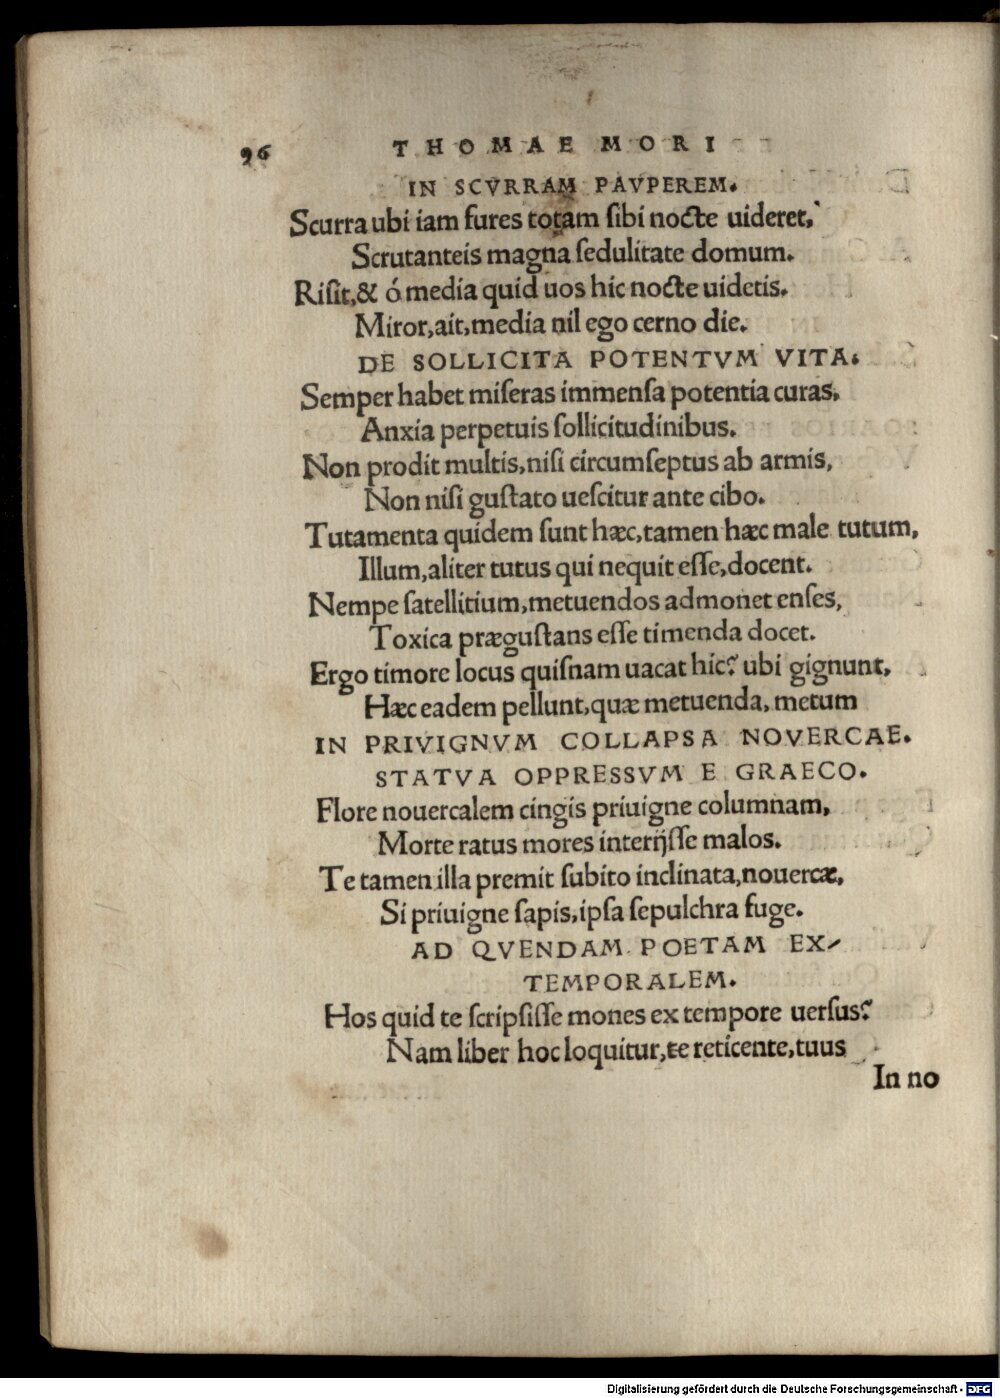 96 THOMAE MORI
IN SCVRRAM PAVPEREM.
Scurra ubi iam fures totam sibi nocte uideret,
Scrutanteis magna sedulitate domum.
Risit,& ó media quid uos hic nocte uidetis.
Miror,ait,media nil ego cerno die.
DE SOLLICITA POTENTVM VITA.
Semper habet miseras immensa potentia curas,
Anxia perpetuis sollicitudinibus.
Non prodit multis,nisi circumseptus ab armis,
Non nisi gustato uescitur ante cibo.
Tutamenta quidem sunt hæc,tamen hæc male tutum,
Illum,aliter tutus qui nequit esse,docent.
Nempe satellitium,metuendos admonet enses,
Toxica prægustans esse timenda docet.
Ergo timore locus quisnam uacat hic? ubi gignunt,
Hæc eadem pellunt,quæ metuenda, metum
IN PRIVIGNVM COLLAPSA NOVERCAE.
STATVA OPPRESSVM E GRAECO.
Flore nouercalem cingis priuigne columnam,
Morte ratus mores interijsse malos.
Te tamen illa premit subito inclinata,nouercæ,
Si priuigne sapis,ipsa sepulchra fuge.
AD QVENDAM POETAM EX-
TEMPORALEM.
Hos quid te scripsisse mones ex tempore uersus?
Nam liber hoc loquitur,te reticente,tuus
In no
Digitalisierung gefördert durch die Deutsche Forschungsgemeinschaft - DFG